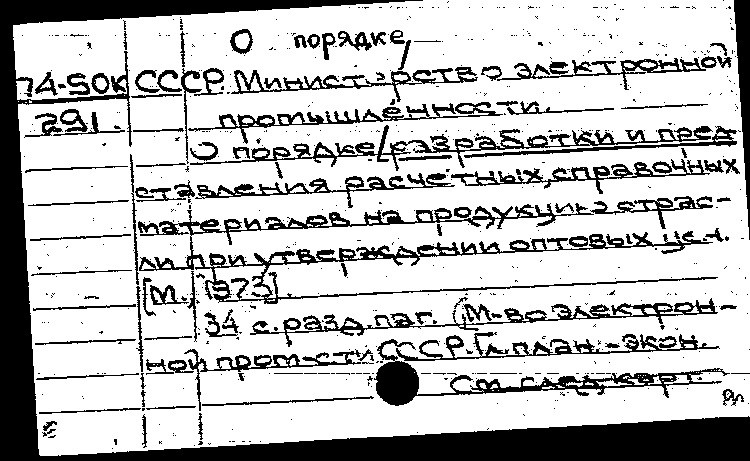 О порядке
74-50К СССР. Министерство электронной
291. промышленности.
О порядке разработки и пред
ставления расчетных, справочных
материалов на продукцию отрас-
ли при утверждении оптовых цен.
[М., 1973].
34 с. разд. паг. (М-во электрон-
ной пром-сти СССР. Гл. план.-экон.
См. след. карт.